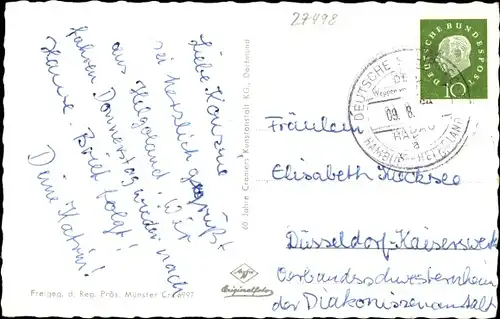 27498
Liebe Karin!
sei herzlich gegrüßt
aus Helgoland! Wir
fahren Donnerstag wieder nach
Hause - Brief folgt!
Deine Katrin!
60 Jahre Cramers Kunstanstalt KG., Dortmund
DEUTSCHE BUNDESPOST
10
DEUTSCHE
09. 8.
HAMBURG-HELGOLAND
a
Fräulein
Elisabeth
Düsseldorf-Kaiserswerth
Verbandsschwesternheim
der Diakonissenanstalt
Freigeg. d. Reg. Präs. Münster
Agfa
Originalfoto